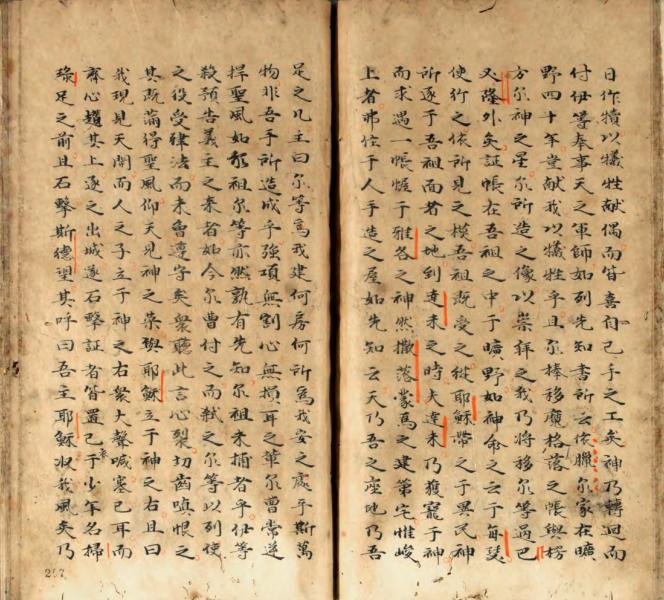 日作犢以犧牲献偶而皆喜自己手之工矣神乃轉迴而
付伊等奉事天之軍師如列先知書所云依臘尔家在曠
野四十年豈献我以犧牲乎且尔捧移魔格落之帳與楞
方尔神之星尔所造之像以崇拜之我乃將移尔等過巴
又隆外矣証帳在吾祖之中于曠野如神命之云于每瑟
使行之依所見之模吾祖既受之従耶穌帶之于異民神
所逐于吾祖面者之地到達未之時夫達未乃獲寵于神
而求遇一帳幄于雅各之神然撒落蒙為之建第宅惟峻
上者弗住于人手造之屋如先知云天乃吾之座地乃吾
足之几主曰尔等為我建何房何所為我安之處乎斯萬
物非吾手所造成乎強項無割心無損耳之輩尔曹常逆
捍聖風如尔祖尔等亦然孰有先知尔祖未捕者乎伊等
殺預告義主之来者如今尔曹付之而弒之尔等以列使
之役受律法而未曾遵守矣衆聽此言心裂切齒嗔恨之
其既滿得聖風仰天見神之榮與耶穌立于神之右且曰
我現見天開而人之子立于神之右衆大聲喊塞己耳而
齊心趨其上逐之出城遂石擊証者皆置己衣于少年名掃
祿足之前且石擊斯德望其呼曰吾主耶穌收我風矣乃